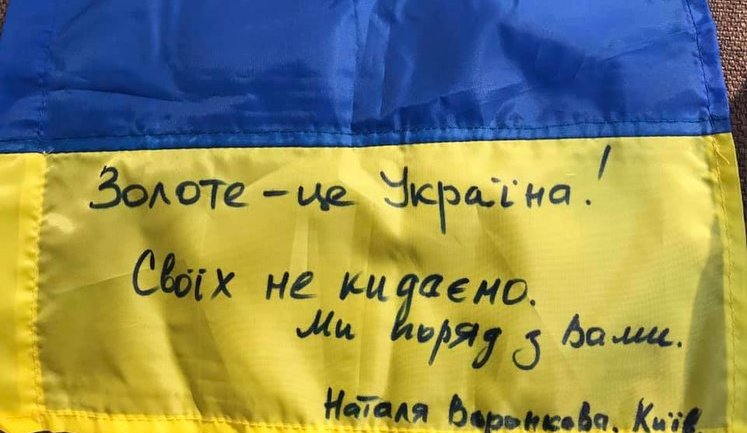 Золоте – це Україна!
Своїх не кидаємо.
Ми поряд з Вами.
Наталя Воронкова, Київ